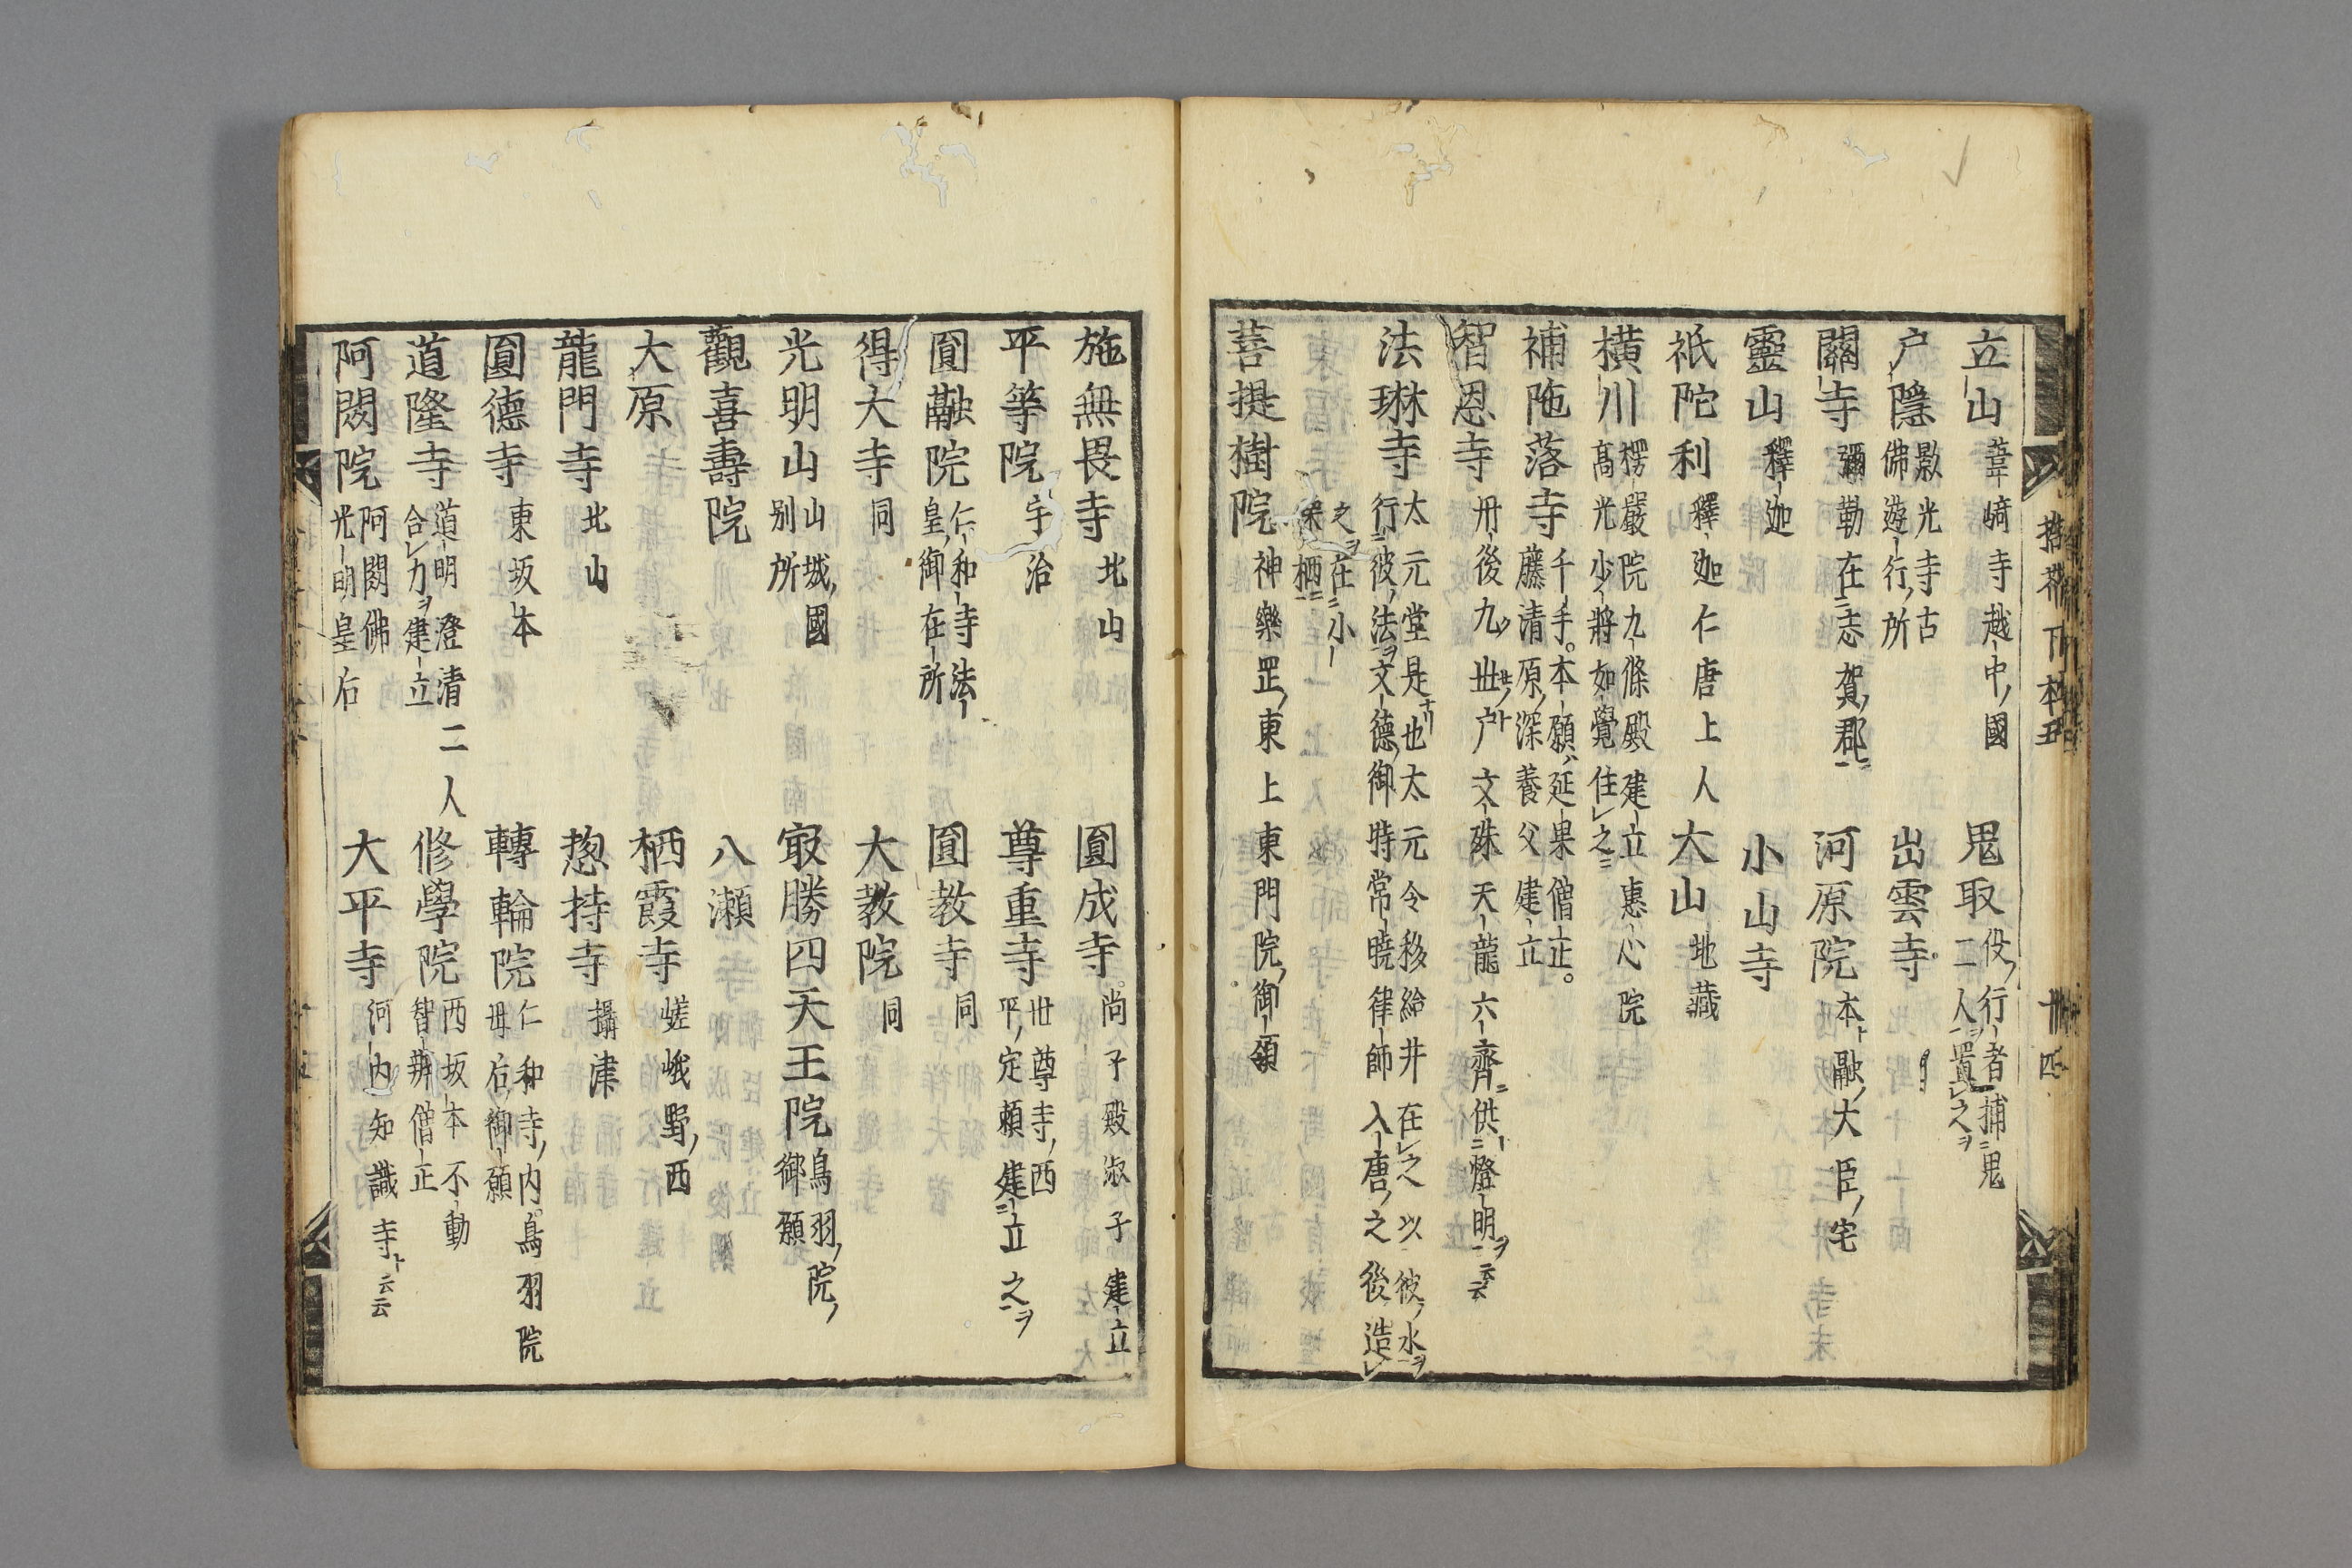 立山 葦﨑寺越中ノ國 鬼取 役ノ行者捕二鬼二人一置レ之ヲ
戸隱 顯光寺古佛遊行ノ所 出雲寺
關寺 彌勒在二志賀ノ郡一 河原院 本ト融ノ大臣ノ宅
靈山 釋迦 小山寺
祇陀利 釋迦仁唐上人 大山 地藏
横川 楞嚴院九條殿建立惠心院高光少將如覺住レ之
補陁落寺 千手。本願ハ延果僧正。藤清原ノ深養父建立
智恩寺 丹後九世ノ戸文殊天龍六齊二供二燈明一ヲ云云
法琳寺 太元堂是也太元令移給井在レ之以彼ノ水ヲ行二彼ノ法ヲ文德ノ御時常曉律師入唐ノ之後造レ
之ヲ在二小栗栖一
菩提樹院 神樂罡ノ東上東門院ノ御領
捨芥下本 廿四
施無畏寺 北山 圓成寺 尚子殿淑子建立
平等院 宇治 尊重寺 世尊寺ノ西平ノ定頼建立之ヲ
圓融院 仁和寺法皇ノ御在所 圓教寺 同
得大寺 同 大教院 同
光明山 山城ノ國別所 㝡勝四天王院 鳥羽ノ院ノ御願
觀喜壽院 八瀬
大原 栖霞寺 嵯峨野ノ西
龍門寺 北山 惣持寺 攝津
圓德寺 東坂本 轉輪院 仁和寺ノ内。鳥羽院母后ノ御願
道隆寺 道明澄清二人合レ力ヲ建立 修學院 西坂本不動智辨僧正
阿閦院 阿閦佛光明皇后 大平寺 河内知識寺ト云云